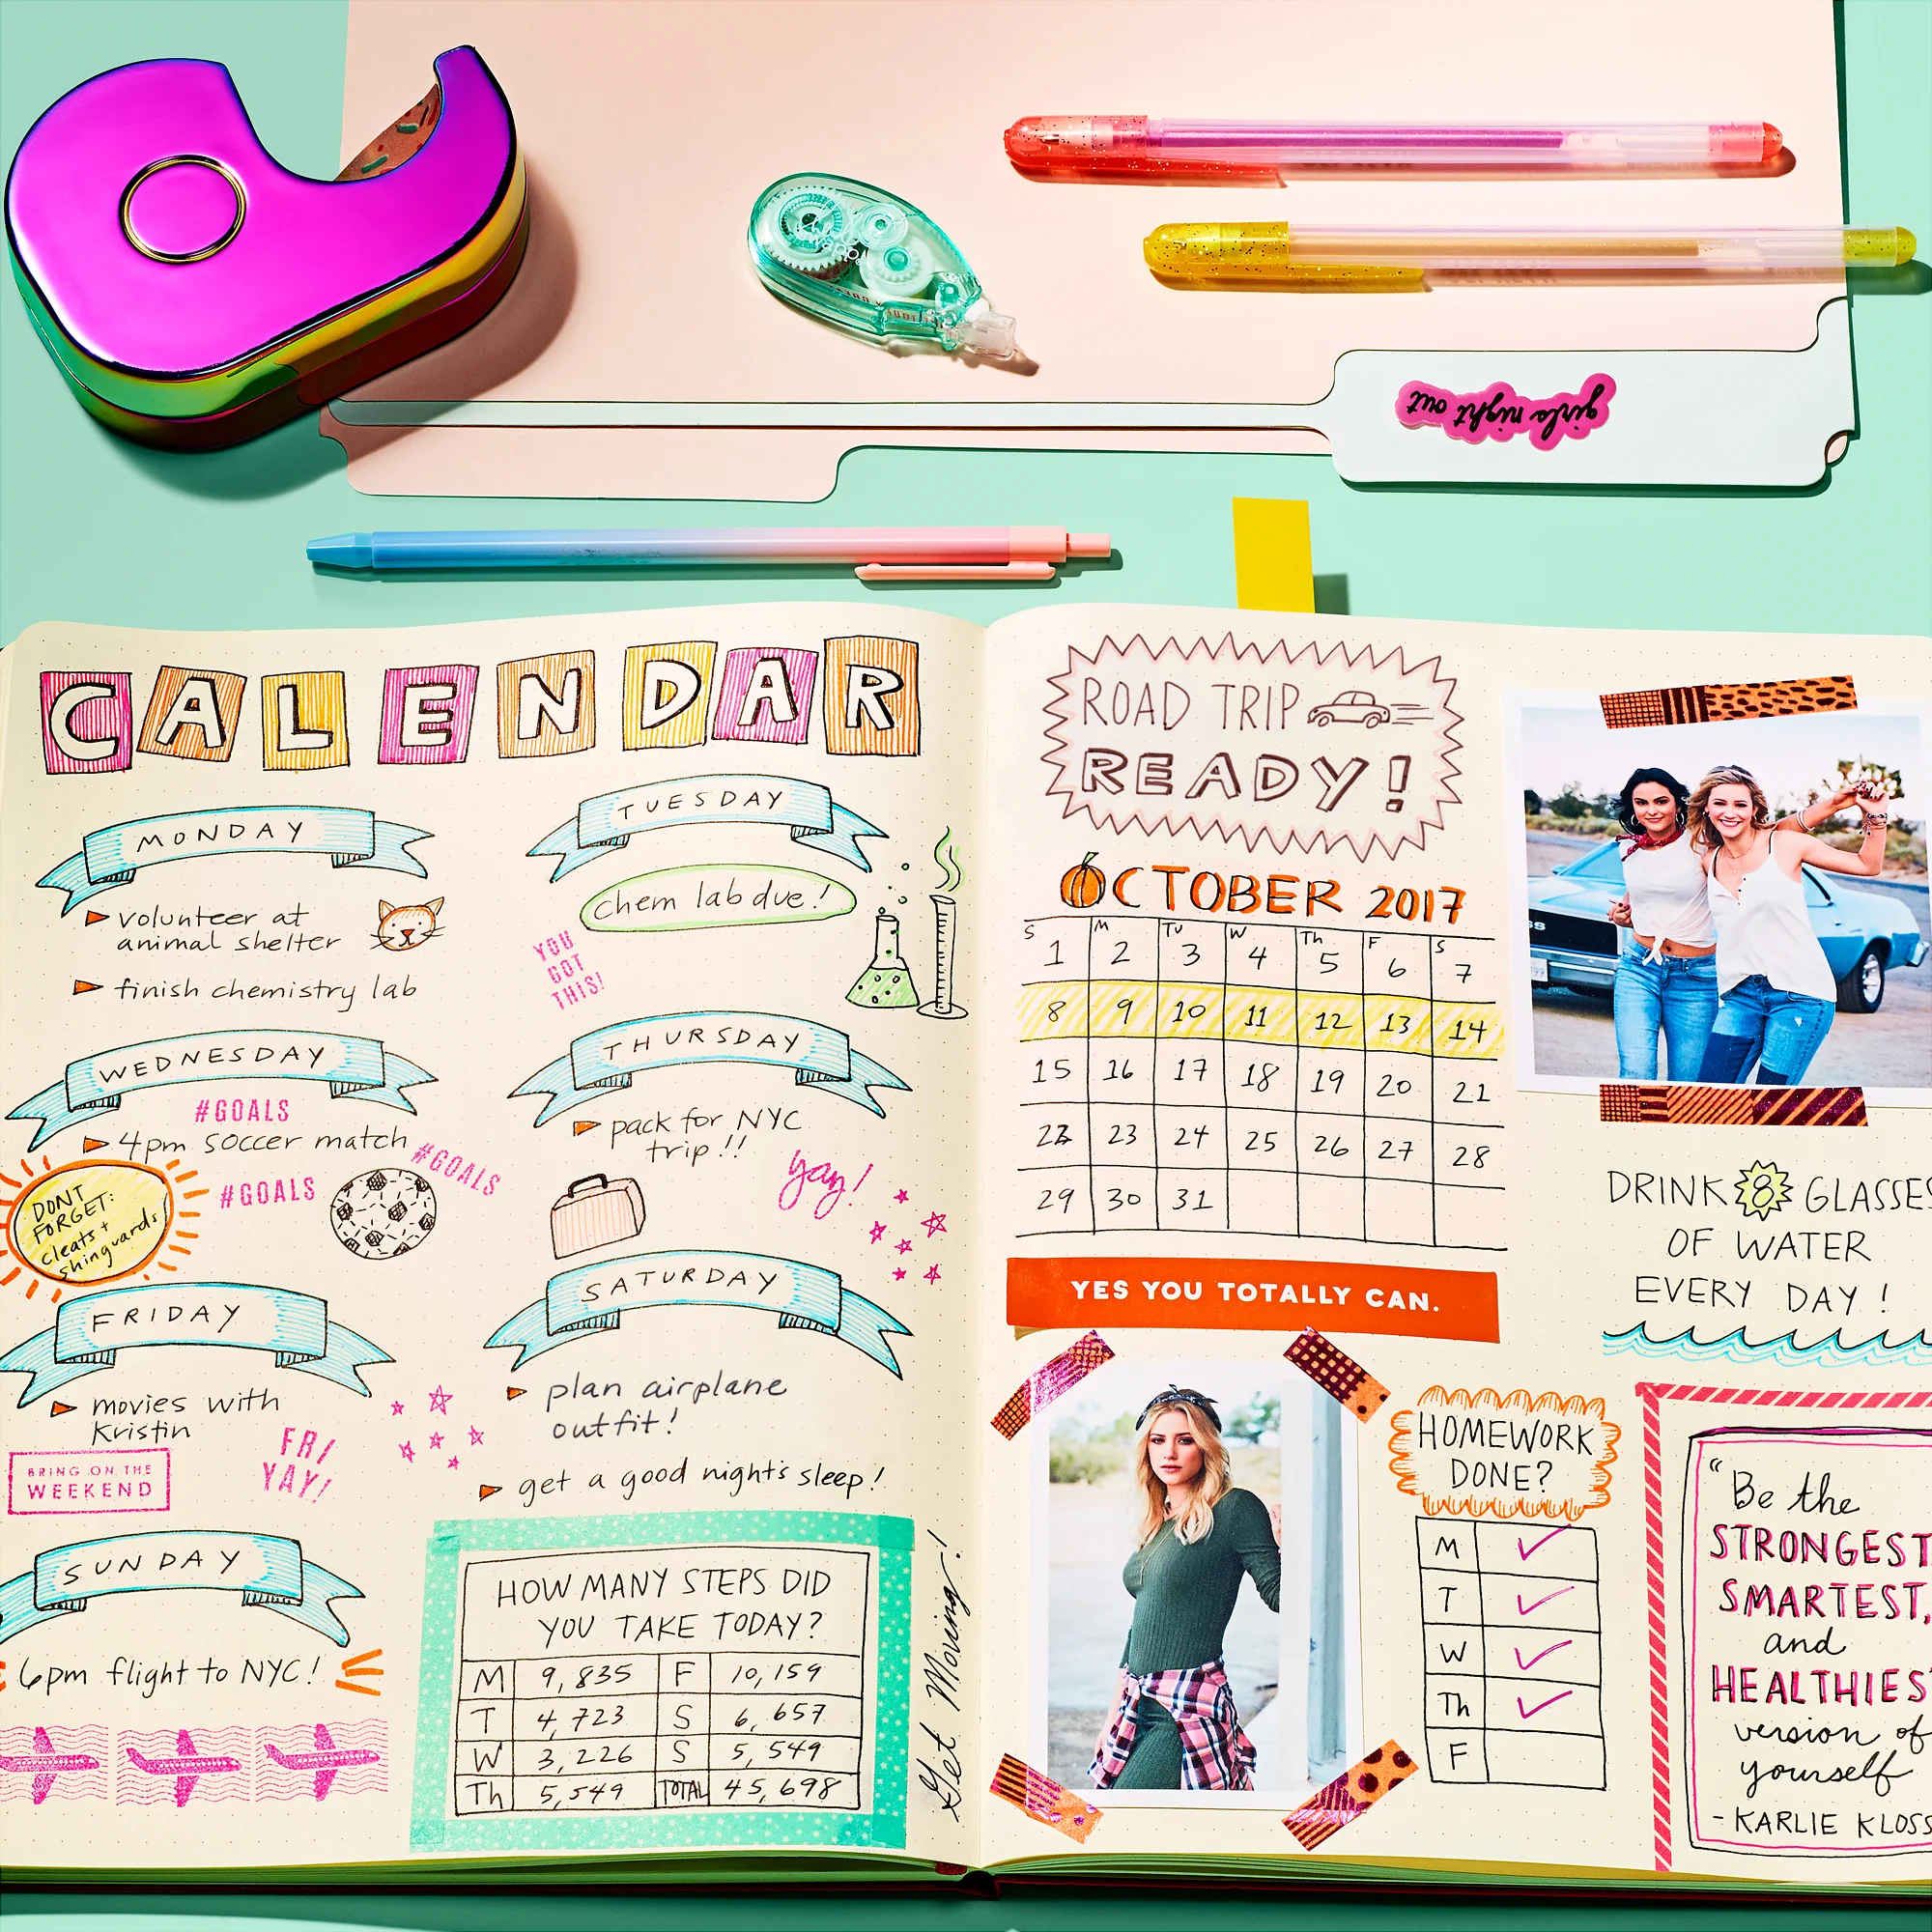 girls night out
CALENDAR
MONDAY
volunteer at
animal shelter
finish chemistry lab
TUESDAY
chem lab due!
YOU
GOT
THIS!
WEDNESDAY
#GOALS
4pm soccer match
#GOALS
#GOALS
DONT
FORGET:
cleats +
shinguards
THURSDAY
pack for NYC
trip!!
yay!
FRIDAY
movies with
Kristin
FRI
YAY!
BRING ON THE
WEEKEND
SATURDAY
plan airplane
outfit!
get a good night's sleep!
SUNDAY
6pm flight to NYC!
HOW MANY STEPS DID
YOU TAKE TODAY?
M 9,835 F 10,159
T 4,723 S 6,657
W 3,226 S 5,549
Th 5,549 TOTAL 45,698
Get Moving!
ROAD TRIP
READY!
OCTOBER 2017
S M Tu W Th F S
1 2 3 4 5 6 7
8 9 10 11 12 13 14
15 16 17 18 19 20 21
22 23 24 25 26 27 28
29 30 31
YES YOU TOTALLY CAN.
DRINK 8 GLASSES
OF WATER
EVERY DAY!
HOMEWORK
DONE?
M ✓
T ✓
W ✓
Th ✓
F
"Be the
STRONGEST
SMARTEST,
and
HEALTHIEST
version of
yourself
- KARLIE KLOSS